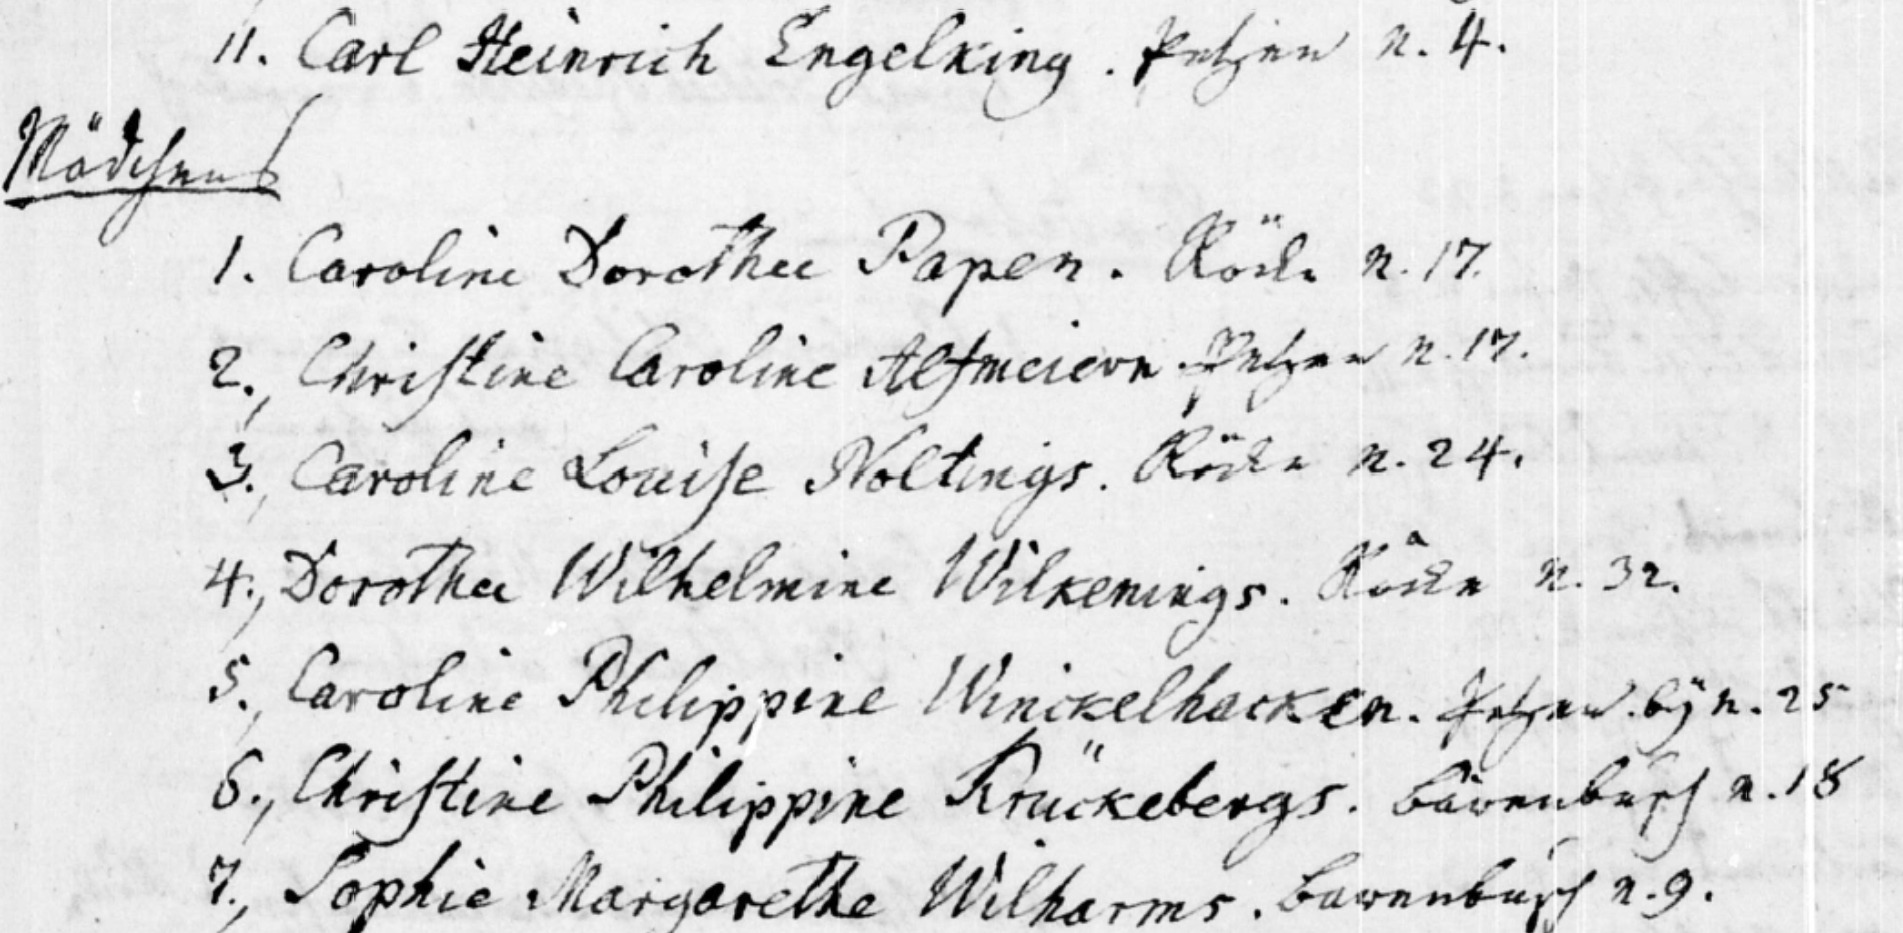 11. Carl Heinrich Engelking. Petzen n. 4.
Mädchens
1. Caroline Dorothee Papen. Röcke n. 17.
2., Christine Caroline Altmeiern. Petzen n. 17.
3., Caroline Louise Noltings. Röcke n. 24.
4., Dorothee Wilhelmine Wilkenings. Röcke n. 32.
5., Caroline Philippine Winickelhacken. Petzen. bÿ n. 25
6., Christine Philippine Krückebergs. Bärenbusch n. 18
7., Sophie Margarethe Wilharms. Barenbusch n. 9.